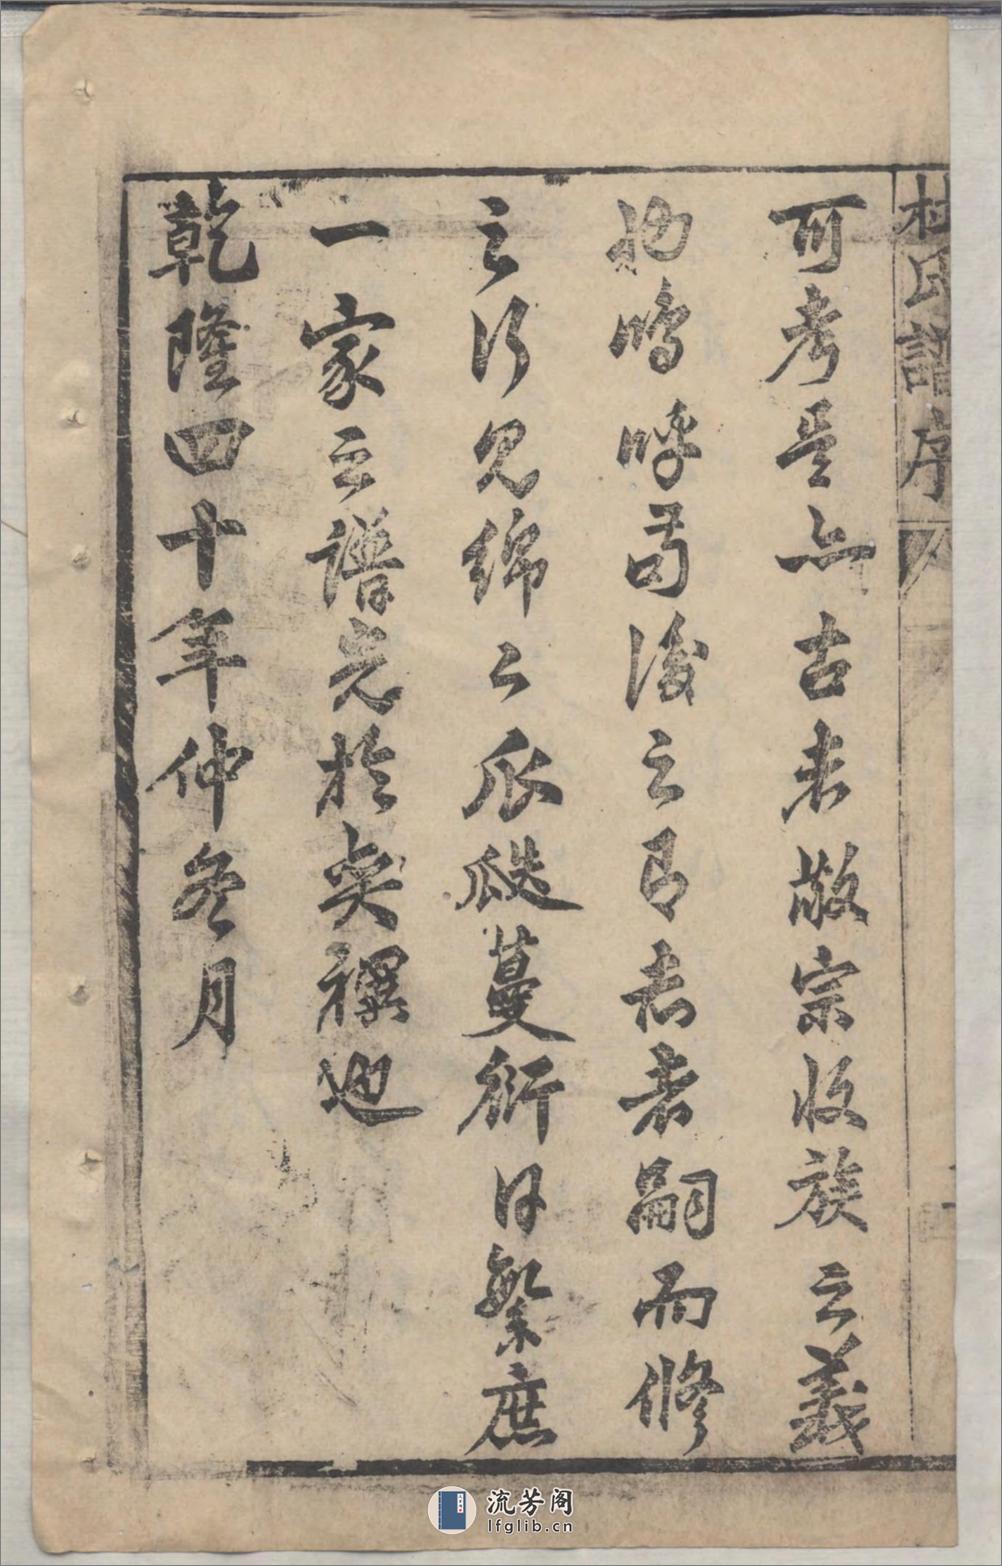 杜氏譜序
可考是亦古来敬宗收族之義
也嗚呼苟後之有志者嗣而修
之行見綿々瓜瓞蔓衍日繁庶
一家之譜光於奕禩也
乾隆四十年仲冬月
流芳阁
lfglib.cn